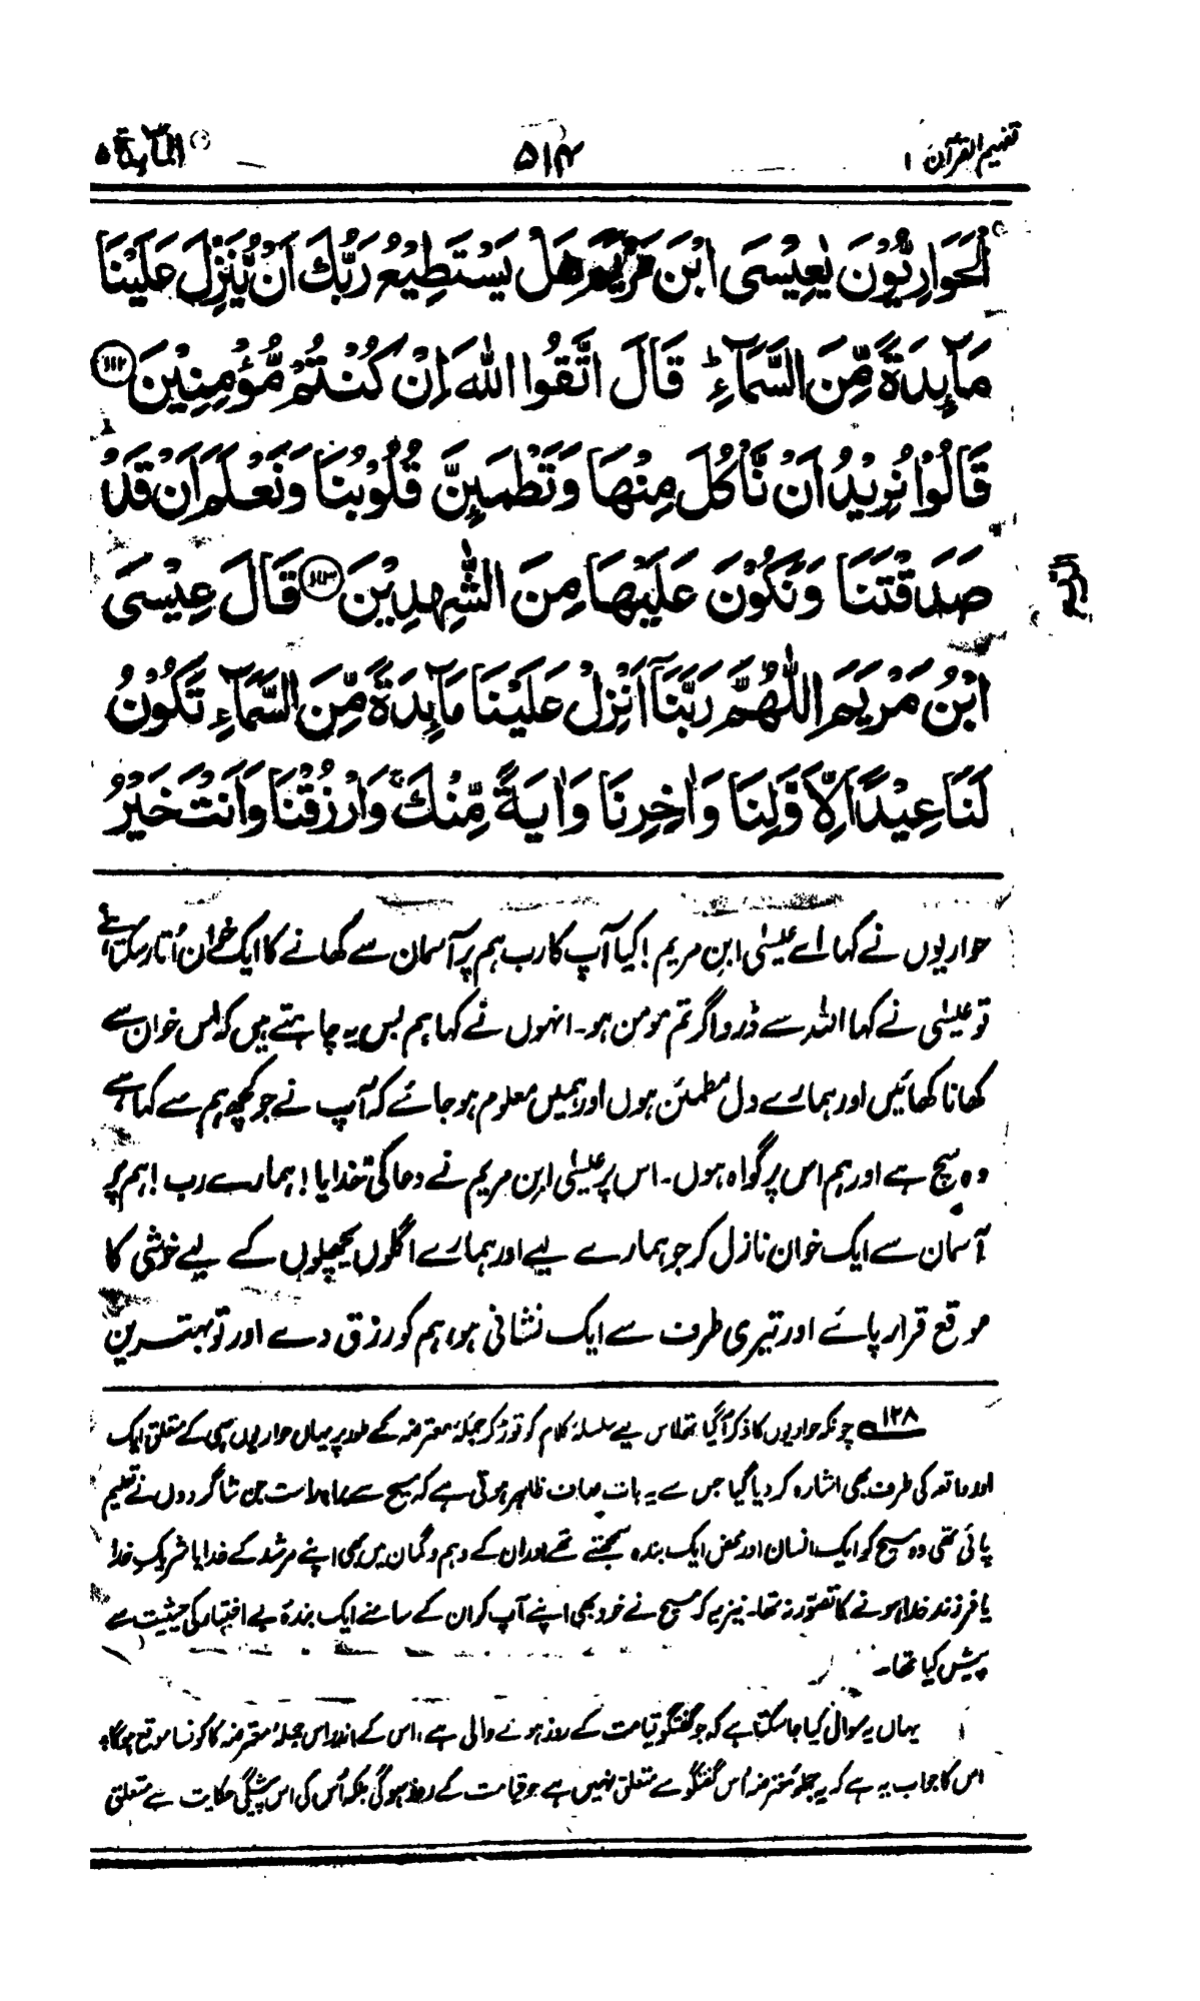 تفہیم القرآن ۱
۵۱۴
المآىِٕدة ۵
الْحَوَارِيُّوْنَ يٰعِيْسَى ابْنَ مَرْيَمَ هَلْ يَسْتَطِيْعُ رَبُّكَ اَنْ يُّنَزِّلَ عَلَيْنَا
مَآىِٕدَةً مِّنَ السَّمَآءِ ؕ قَالَ اتَّقُوا اللّٰهَ اِنْ كُنْتُمْ مُّؤْمِنِيْنَ ۝۱۱۲
قَالُوْا نُرِيْدُ اَنْ نَّاْكُلَ مِنْهَا وَتَطْمَىِٕنَّ قُلُوْبُنَا وَنَعْلَمَ اَنْ قَدْ
صَدَقْتَنَا وَنَكُوْنَ عَلَيْهَا مِنَ الشّٰهِدِيْنَ ۝۱۱۳ قَالَ عِيْسَى
ابْنُ مَرْيَمَ اللّٰهُمَّ رَبَّنَآ اَنْزِلْ عَلَيْنَا مَآىِٕدَةً مِّنَ السَّمَآءِ تَكُوْنُ
لَنَا عِيْدًا لِّاَوَّلِنَا وَاٰخِرِنَا وَاٰيَةً مِّنْكَ ۚ وَارْزُقْنَا وَاَنْتَ خَيْرُ
حواریوں نے کہا اے عیسٰی ابن مریم! کیا آپ کا رب ہم پر آسمان سے کھانے کا ایک خوان اُتار سکتا ہے؟
تو عیسٰی نے کہا اللہ سے ڈرو اگر تم مومن ہو۔ انہوں نے کہا ہم بس یہ چاہتے ہیں کہ اس خوان سے
کھانا کھائیں اور ہمارے دل مطمئن ہوں اور ہمیں معلوم ہو جائے کہ آپ نے جو کچھ ہم سے کہا ہے
وہ سچ ہے اور ہم اس پر گواہ ہوں۔ اس پر عیسٰی ابن مریم نے دعا کی ”خدایا! ہمارے رب! ہم پر
آسمان سے ایک خوان نازل کر جو ہمارے لیے اور ہمارے اگلوں پچھلوں کے لیے خوشی کا
موقع قرار پائے اور تیری طرف سے ایک نشانی ہو، ہم کو رزق دے اور تو بہترین
۱۲۸ چونکہ حواریوں کا ذکر آگیا تھا اس لیے سلسلۂ کلام کو توڑ کر جملۂ معترضہ کے طور پر یہاں حواریوں ہی کے متعلق ایک
اور واقعہ کی طرف بھی اشارہ کر دیا گیا جس سے یہ بات صاف ظاہر ہوتی ہے کہ مسیح سے براہ راست جن شاگردوں نے تعلیم
پائی تھی وہ مسیح کو ایک انسان اور محض ایک بندہ سمجھتے تھے اور ان کے وہم و گمان میں بھی اپنے مرشد کے خدا یا شریکِ خدا
یا فرزند خدا ہونے کا تصوّر نہ تھا۔ نیز یہ کہ مسیح نے خود بھی اپنے آپ کو ان کے سامنے ایک بندۂ بے اختیار کی حیثیت سے
پیش کیا تھا۔
یہاں یہ سوال کیا جا سکتا ہے کہ جو گفتگو قیامت کے روز ہونے والی ہے، اس کے اندر اس جملۂ معترضہ کا کونسا موقع ہوگا؟
اس کا جواب یہ ہے کہ یہ جملۂ معترضہ اُس گفتگو سے متعلق نہیں ہے جو قیامت کے روز ہوگی بلکہ اُس کی اس پیشگی حکایت سے متعلق